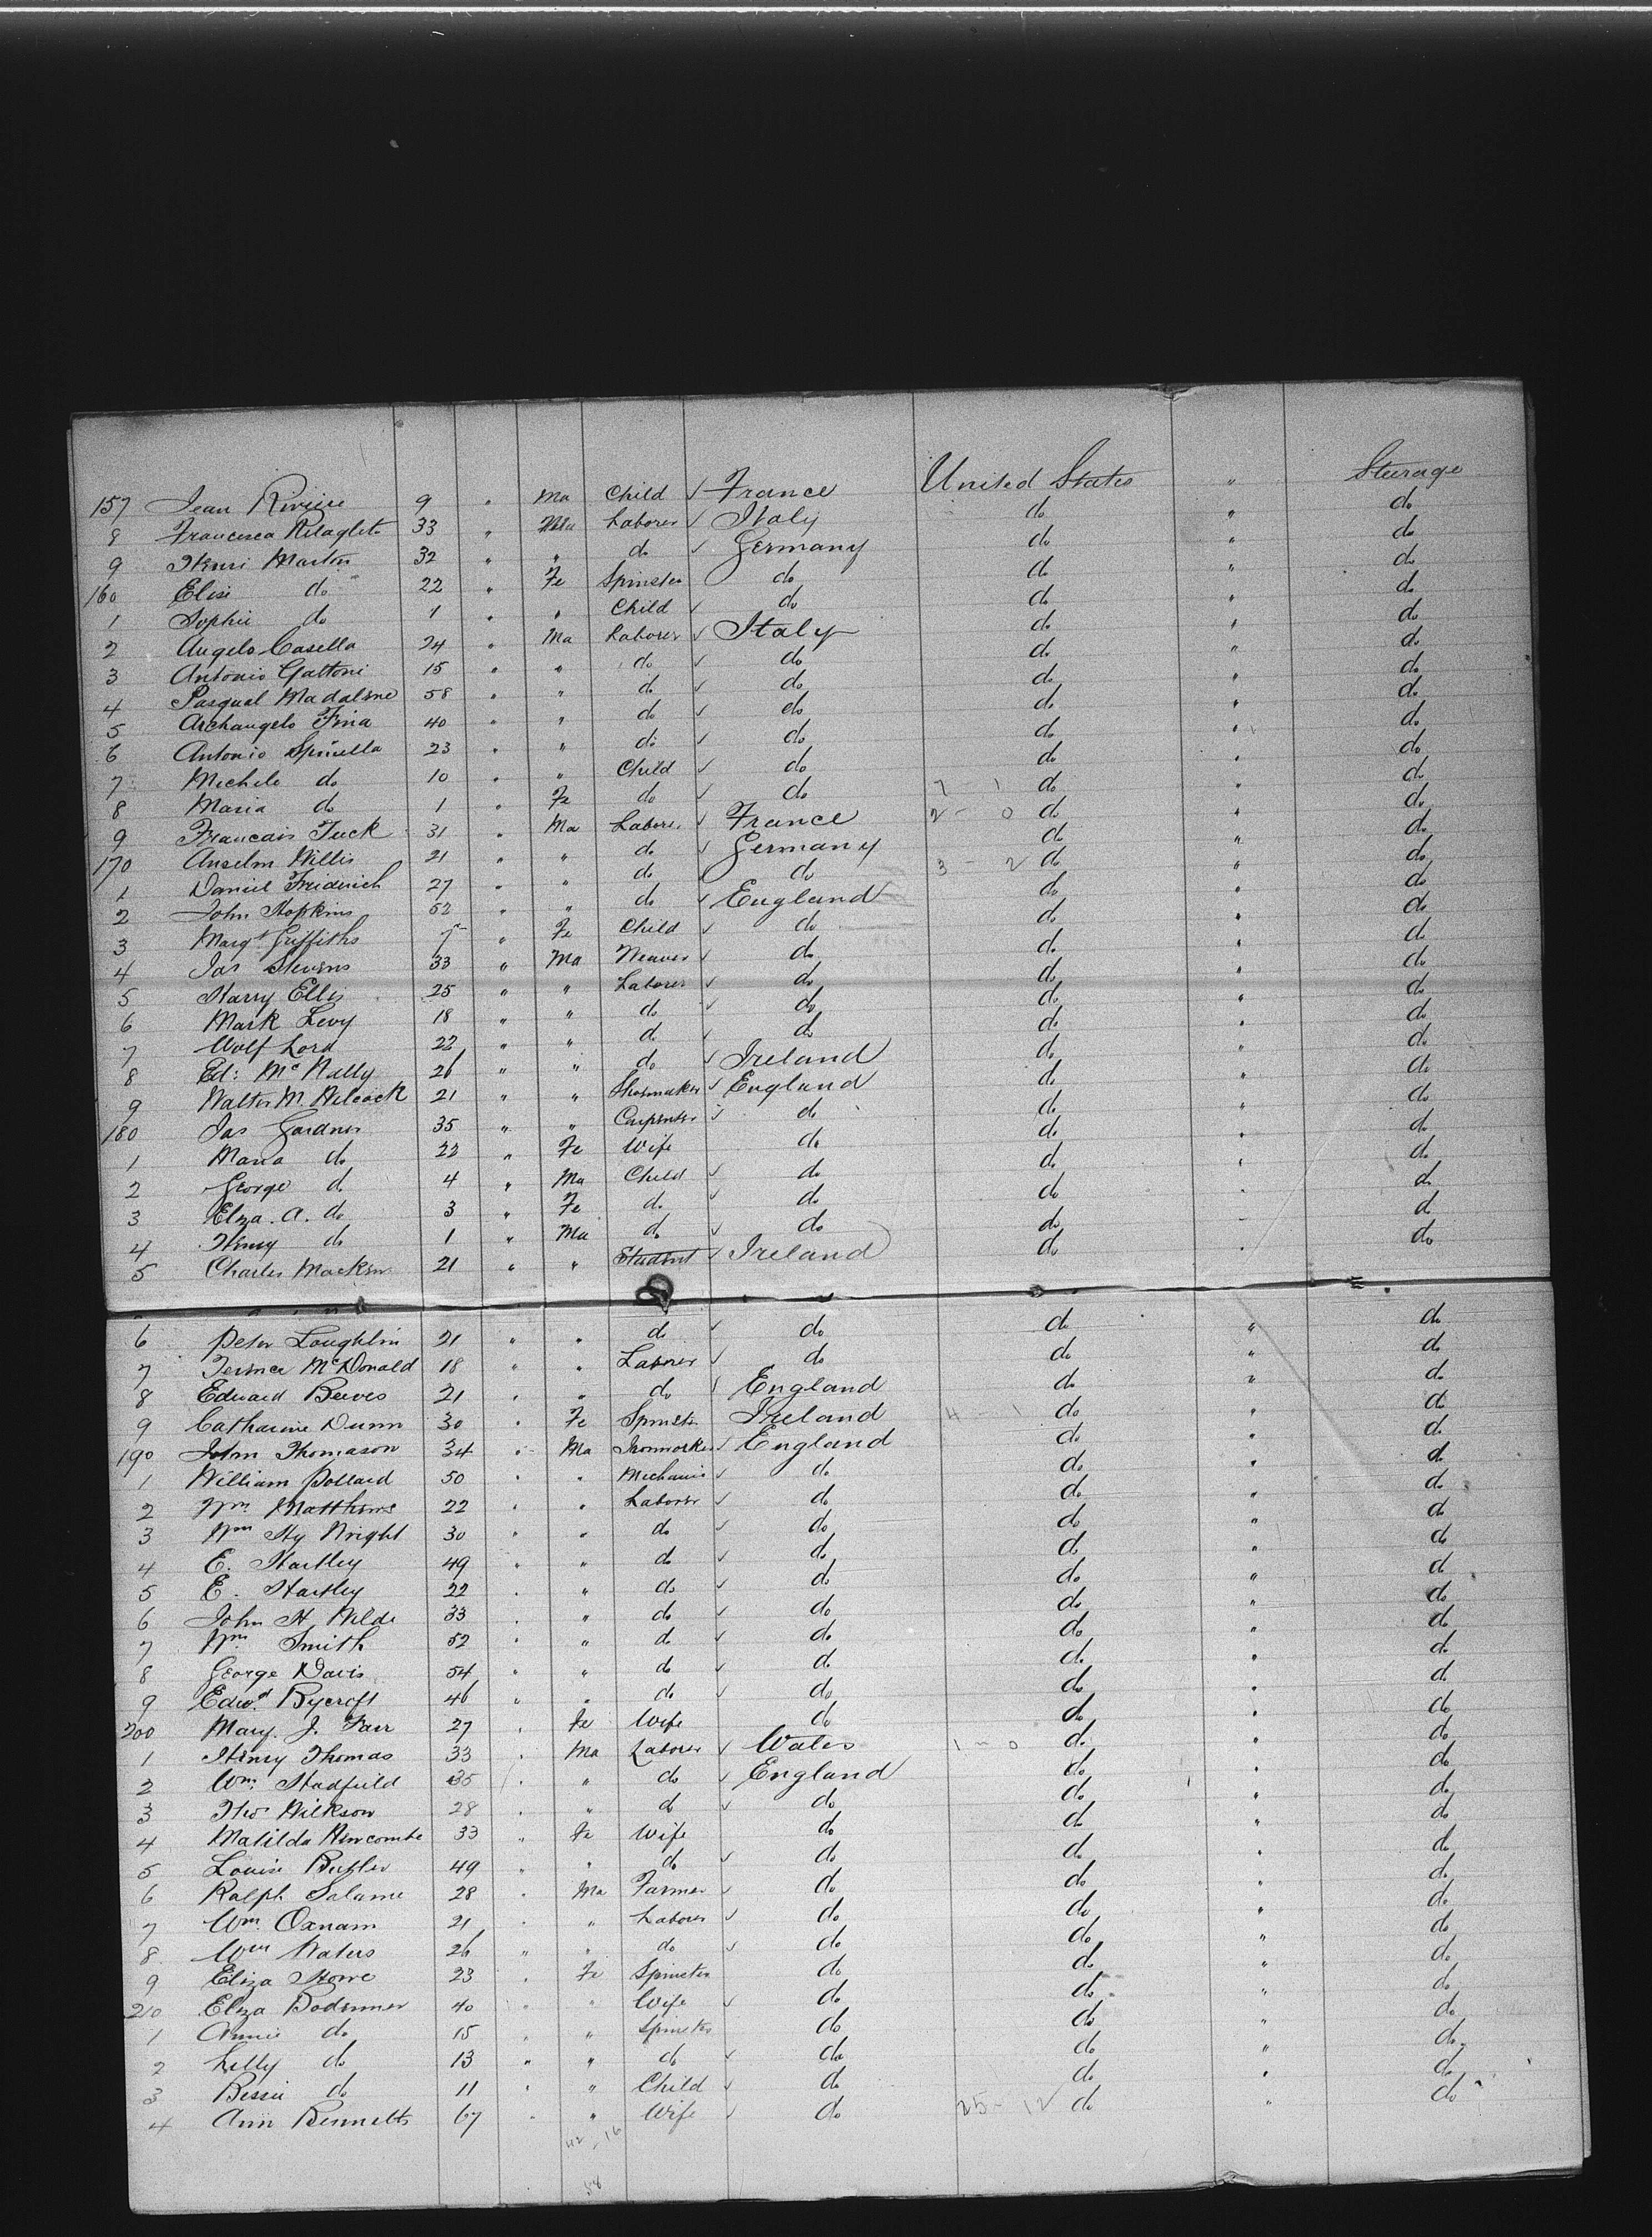 157 Jean Riviere 9 " Ma Child ✓ France United States " Sterage
8 Francesca 33 " Ma Laborer ✓ Italy do " do
9 Henri Martin 32 " " do ✓ Germany do " do
160 Elise do 22 " Fe Spinster do do " do
1 Sophie do 1 " " Child ✓ do do " do
2 Angelo Casella 24 " Ma Laborer ✓ Italy do " do
3 Antonio Gattoni 15 " " do ✓ do do " do
4 Pasqual Madalene 58 " " do ✓ do do " do
5 Archangelo Fina 40 " " do ✓ do do " do
6 Antonio Spinella 23 " " do ✓ do do " do
7 Michele do 10 " " Child ✓ do do " do
8 Maria do 1 " Fe do ✓ do 7 1 do " do
9 Francais Tuck 31 " Ma Labore. ✓ France 2 - 0 do " do
170 Anselm Willis 21 " " do ✓ Germany do " do
1 Daniel Friderich 27 " " do do 3 - 2 do " do
2 John Hopkins 52 " " do ✓ England do " do
3 Margt Griffiths 7 " Fe Child ✓ do do " do
4 Jas Stevens 33 " Ma Weaver ✓ do do " do
5 Harry Ellis 25 " " Laborer ✓ do do " do
6 Mark Levy 18 " " do ✓ do do " do
7 Wolf Lord 22 " " do ✓ do do " do
8 Ed: McNally 26 " " do ✓ Ireland do " do
9 Walter M. Hilcock 21 " " Shoemaker ✓ England do " do
180 Jas Gardner 35 " " Carpenter ✓ do do " do
1 Maria do 22 " Fe Wife do do " do
2 George do 4 " Ma Child ✓ do do " do
3 Elza. A. do 3 " Fe do ✓ do do " do
4 Henry do 1 " Ma do ✓ do do " do
5 Charles Macken 21 " " Student ✓ Ireland do " do
6 Peter Loughlin 21 " " do ✓ do do " do
7 Terence McDonald 18 " " Laborer ✓ do do " do
8 Edward Beeves 21 " " do ✓ England do " do
9 Catharine Dunn 30 " Fe Spinster Ireland 4 - 1 do " do
190 John Thomason 34 " Ma Ironworker ✓ England do " do
1 William Pollard 50 " " Mechanic ✓ do do " do
2 Wm Matthews 22 " " Laborer ✓ do do " do
3 Wm Hy Wright 30 " " do ✓ do do " do
4 E. Hartley 49 " " do ✓ do do " do
5 E. Hartley 22 " " do ✓ do do " do
6 John H. Wilde 33 " " do ✓ do do " do
7 Wm Smith 52 " " do ✓ do do " do
8 George Davis 54 " " do ✓ do do " do
9 Edwd Rycroft 46 " " do ✓ do do " do
200 Mary. J. Farr 27 " Fe Wife do do " do
1 Henry Thomas 33 " Ma Laborer ✓ Wales 1 - 0 do " do
2 Wm Hadfield 35 " " do ✓ England do " do
3 Thos Wilkson 28 " " do ✓ do do " do
4 Matilda Hincombe 33 " Fe Wife do do " do
5 Louise Butler 49 " " do ✓ do do " do
6 Ralph Salame 28 " Ma Farmer ✓ do do " do
7 Wm Oxnam 21 " " Laborer ✓ do do " do
8 Wm Waters 26 " " do ✓ do do " do
9 Eliza Howe 23 " Fe Spinster do do " do
210 Elza Bodenner 40 " " Wife ✓ do do " do
1 Annie do 15 " " Spinster do do " do
2 Lilly do 13 " " do ✓ do do " do
3 Bessie do 11 " " Child ✓ do do " do
4 Ann Bennetts 67 " " Wife ✓ do 25 - 12 do " do
42 - 16
58